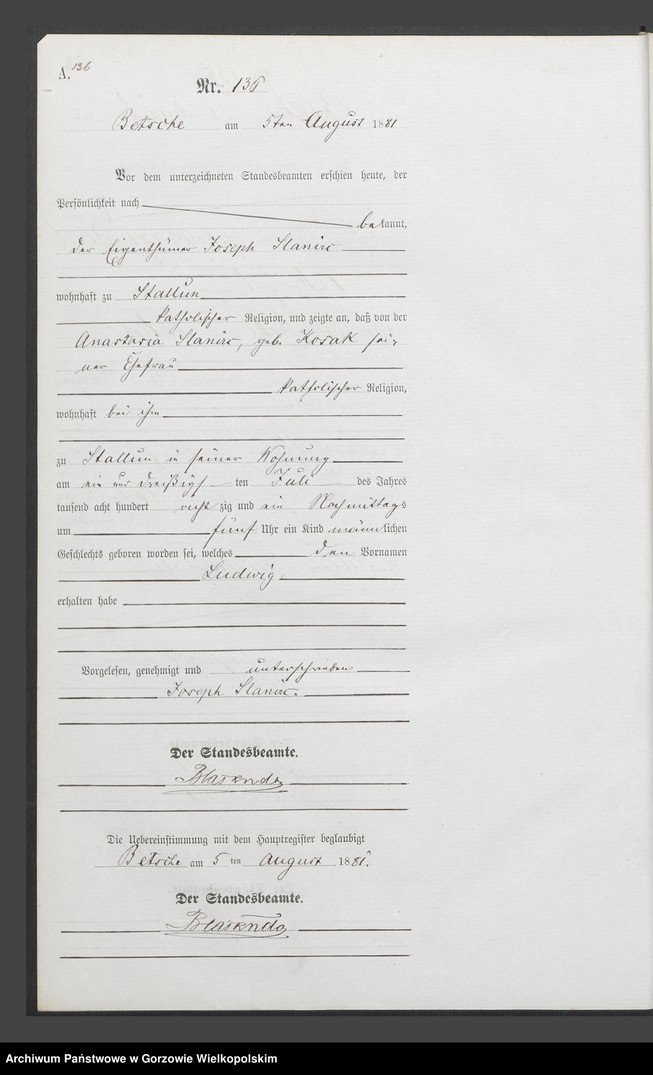 A. 136
Nr. 136
Betsche am 5ten August 1881
Vor dem unterzeichneten Standesbeamten erschien heute, der
Persönlichkeit nach
bekannt,
der Eigenthümer Joseph
wohnhaft zu Stallun
katholischer Religion, und zeigte an, daß von der
Anastasia geb. Kosak sei-
ner Ehefrau
katholischer Religion,
wohnhaft bei ihm
zu Stallun in seiner Wohnung
am ein und dreißigsten Juli des Jahres
tausend acht hundert achtzig und ein Nachmittags
um fünf Uhr ein Kind männlichen
Geschlechts geboren worden sei, welches den Vornamen
Ludwig
erhalten habe
Vorgelesen, genehmigt und unterschrieben
Joseph
Der Standesbeamte.
Die Uebereinstimmung mit dem Hauptregister beglaubigt
Betsche am 5 ten August 1881.
Der Standesbeamte.
Archiwum Państwowe w Gorzowie Wielkopolskim